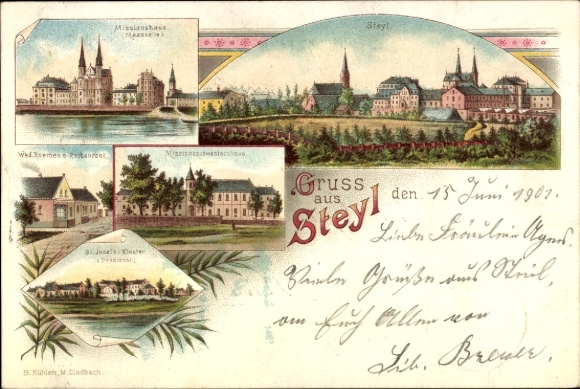 Missionshaus
(Maasseite)
Steyl.
Wed. Roemen's Restaurant.
Missionsschwesternhaus.
St. Josefs-Kloster
(Pensionat.)
Gruss
aus
Steyl
den 15 Juni 1901.
Liebe Fräulein Agnes.
Viele Grüße aus Steil,
an Euch Allen von
Sib. Brewer.
B. Kühlen, M. Gladbach.